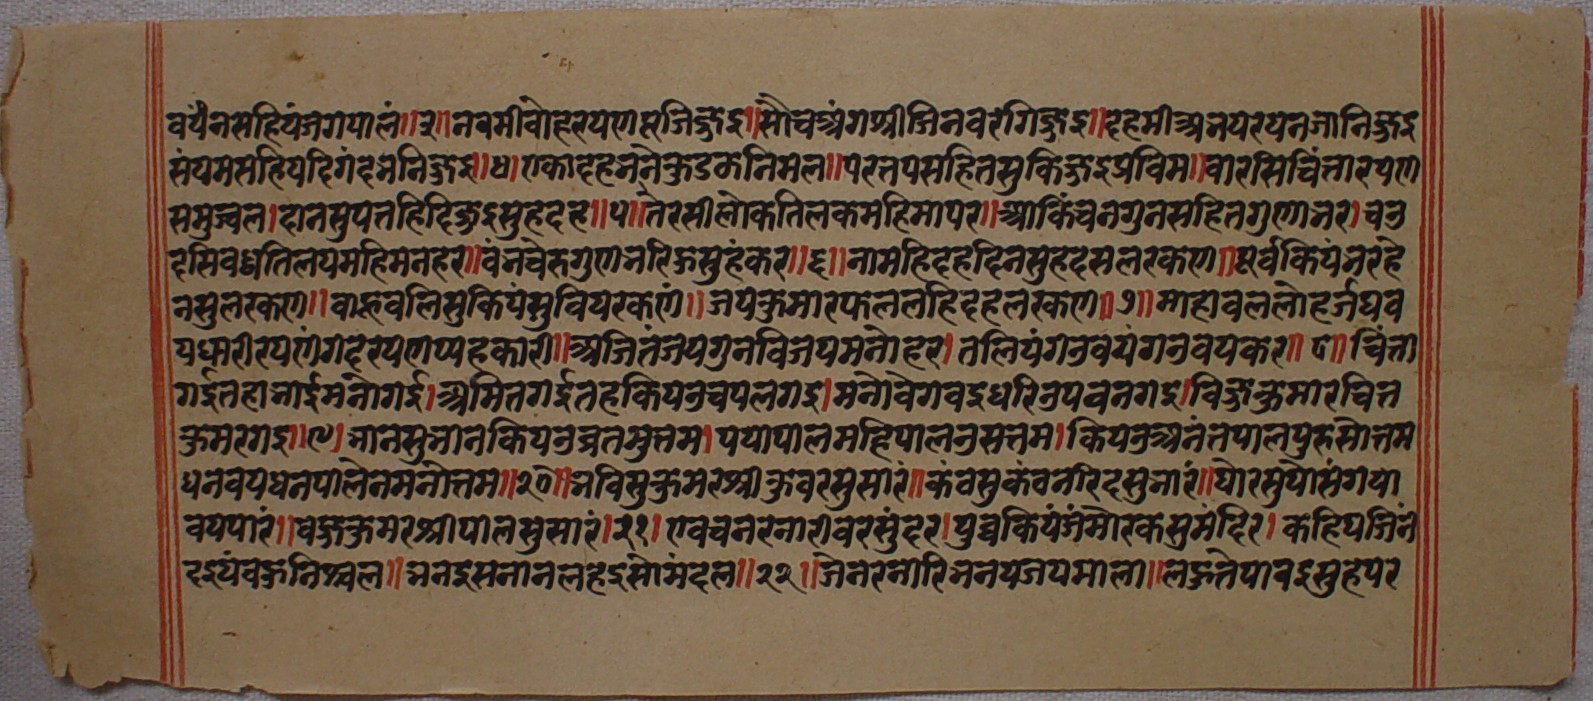 वयैनसहियंजगपालं॥३॥नवमीवोहरयणप्तजिज्जइ॥सौचअंगश्रीजिनवरगिज्जइ॥दहमीअनयरयनजानिज्जइ
संयमसहियदिगंदमनिज्जइ॥४।एकादहननैकुडकनिमल॥परतपसहितसुकिज्जइप्रविम॥वारसिचिंत्तारयण
समुज्वल।दानसुपत्तहिदिज्जइसुहदह॥५॥तेरसीलोकतिलकमहिमापर॥आकिंचनगुनसहितगुणानर।चउ
दसिवद्धतिलयमहिमनहर॥वंनचेरुगुणनरिऊसुहंकर॥६॥नामहिदहदिनसुहदसलरकण॥पूर्वकियंनरहे
नसुलरकण॥वाहुवलिसुकियंसुवियरकणं॥जयकुमारफललहिदहलरकण॥७॥माहावललोहर्जघव
यधारीरयणंगदरयणप्पहकारी॥अजितंजयगुनविजयमनोहर।तलियंगउवयंगउवयकर॥८॥चिंता
गईतहाजाईमनोगई।अमितगईतहकियउचपलगइ।मनोवेगवइधरिउपवनगइ।विज्जकुमारचित्त
कुमरगइ॥९।मानसुमानकियउव्रतमुत्तम।पयापालमहिपालउसत्तम।कियउअनंतपालपुरुसोत्तम
धनवयधनपालेनमनोत्तम॥१०॥नविसुकुमरश्रीकुवरसुसारं॥कंवसुकंवनरिदसुनारं॥घोरसुघोसंगया
वयपारं॥वज्जकुमरश्रीपालसुसारं।११।एवचनरनारीवरसुंदर।पुव्वकियंजंमोरकसुमंदिर।कहियजिनं
दइयंवऊनिश्चल॥मनइसनानलहेइसोमंदल॥१२॥जेनरनारिमनयजयमाला॥लऊतेपावइसुहेपर